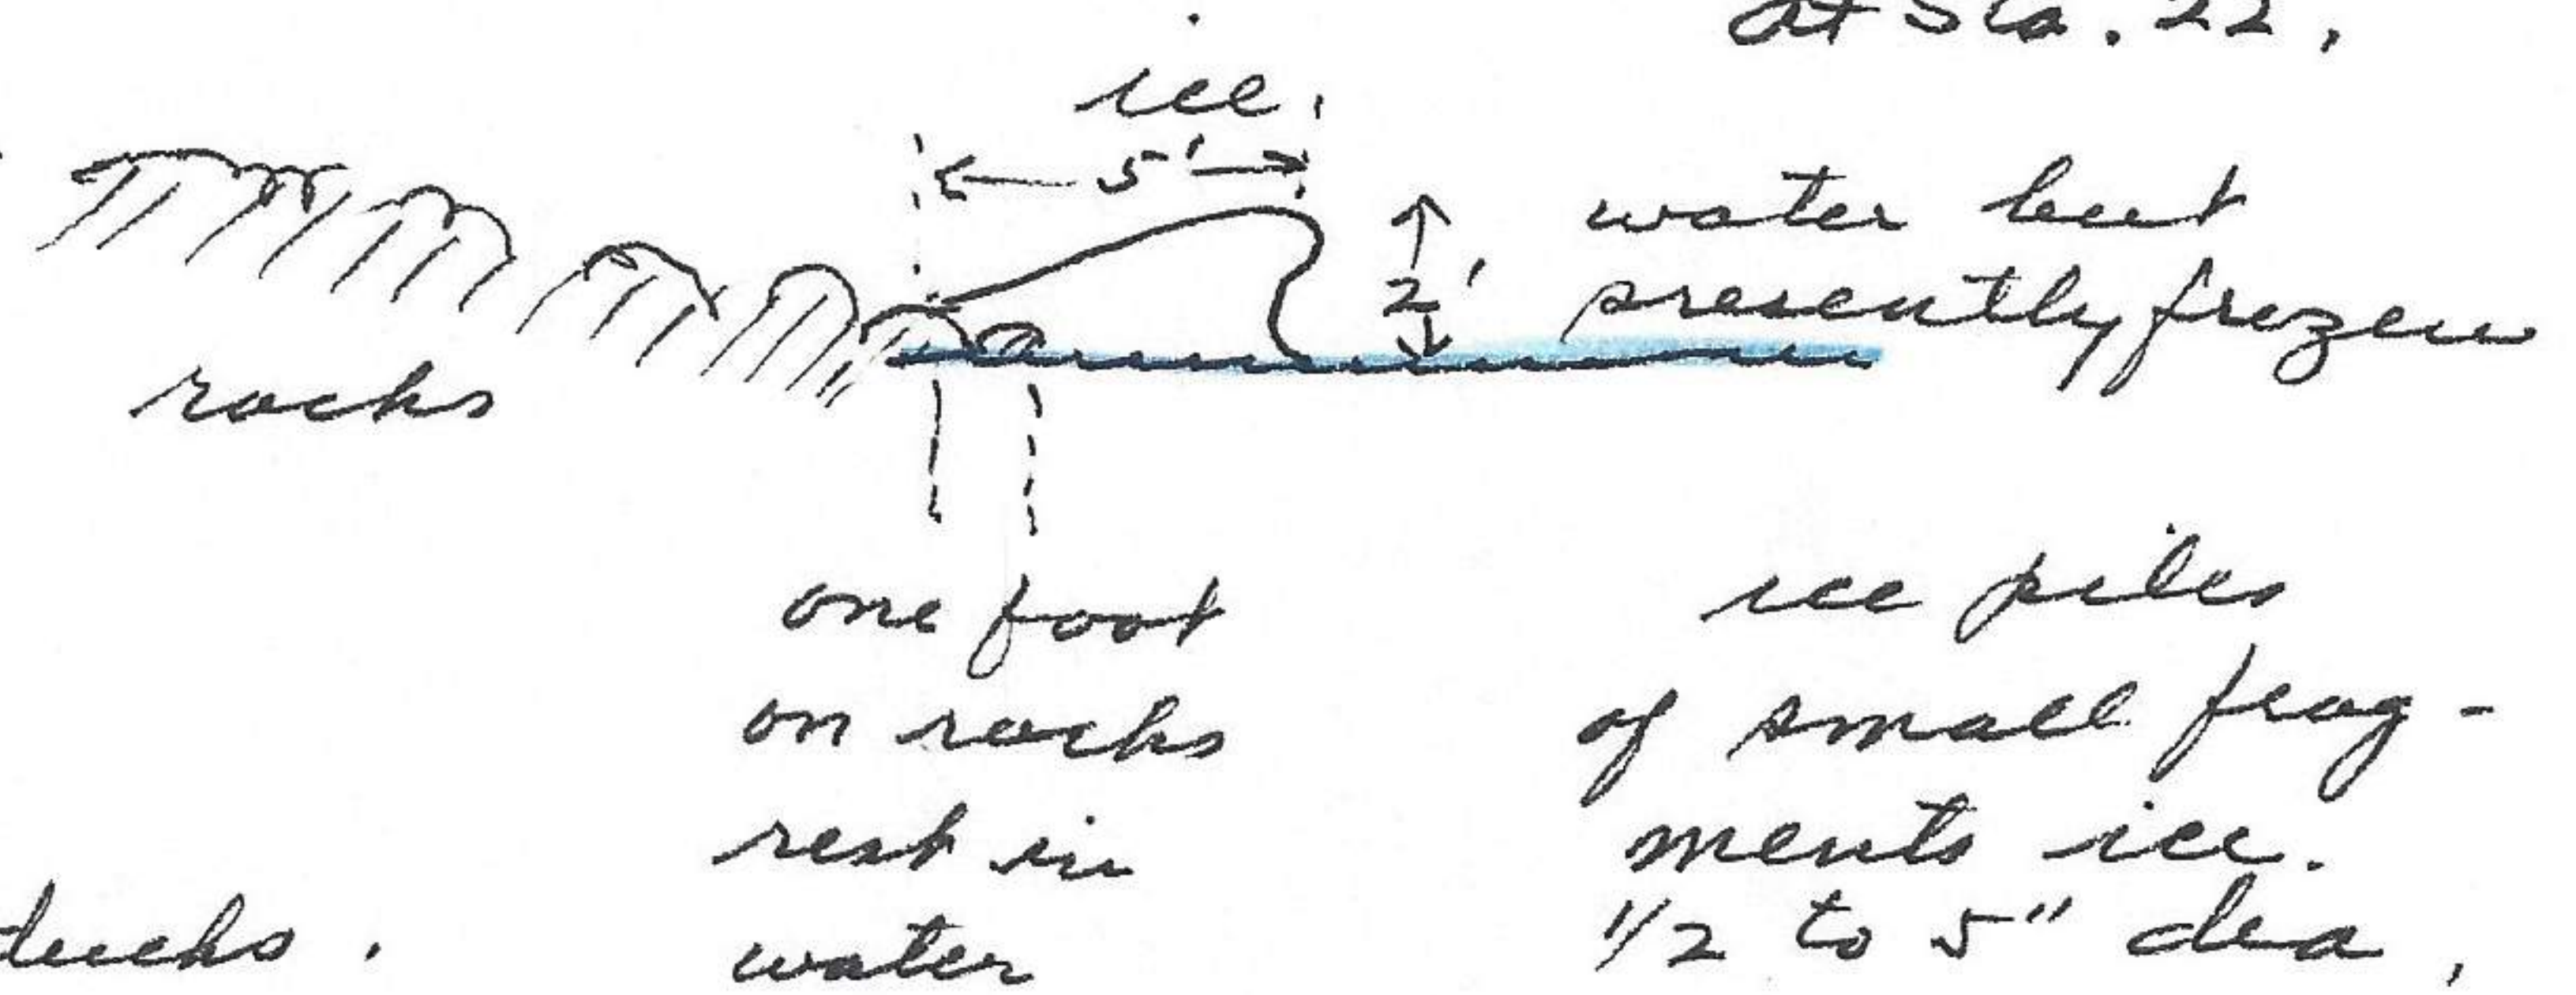 at Sta. 22.
ice
5'
water but
2' presently frozen
rocks
one foot
on rocks
rest in
water
ice piles
of small frag-
ments ice.
1/2 to 5" dia.
ducks.